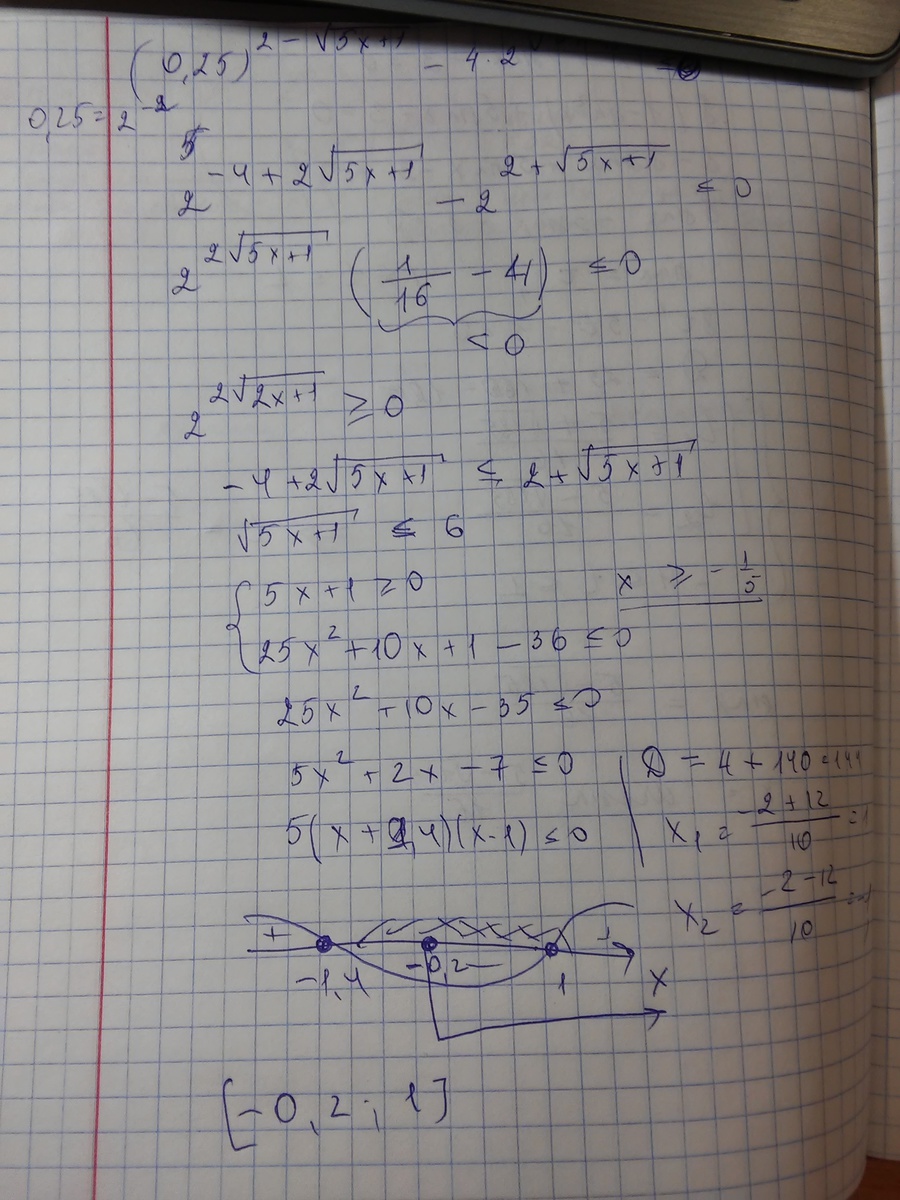 (0,25)^{2 - √(5x+1)} - 4 · 2^√
0,25 = 2^{-2}
2^{-4 + 2√(5x+1)} - 2^{2 + √(5x+1)} ≤ 0
2^{2√(5x+1)} (1/16 - 4) ≤ 0
< 0
2^{2√(2x+1)} ≥ 0
-4 + 2√(5x+1) ≤ 2 + √(5x+1)
√(5x+1) ≤ 6
{ 5x + 1 ≥ 0 x ≥ - 1/5
25x² + 10x + 1 - 36 ≤ 0
25x² + 10x - 35 ≤ 0
5x² + 2x - 7 ≤ 0 | D = 4 + 140 = 144
5(x + 1,4)(x - 1) ≤ 0 | x₁ = (-2 + 12)/10 = 1
x₂ = (-2 - 12)/10 =
+ - +
-1,4 -0,2 1 x
[-0,2 ; 1]